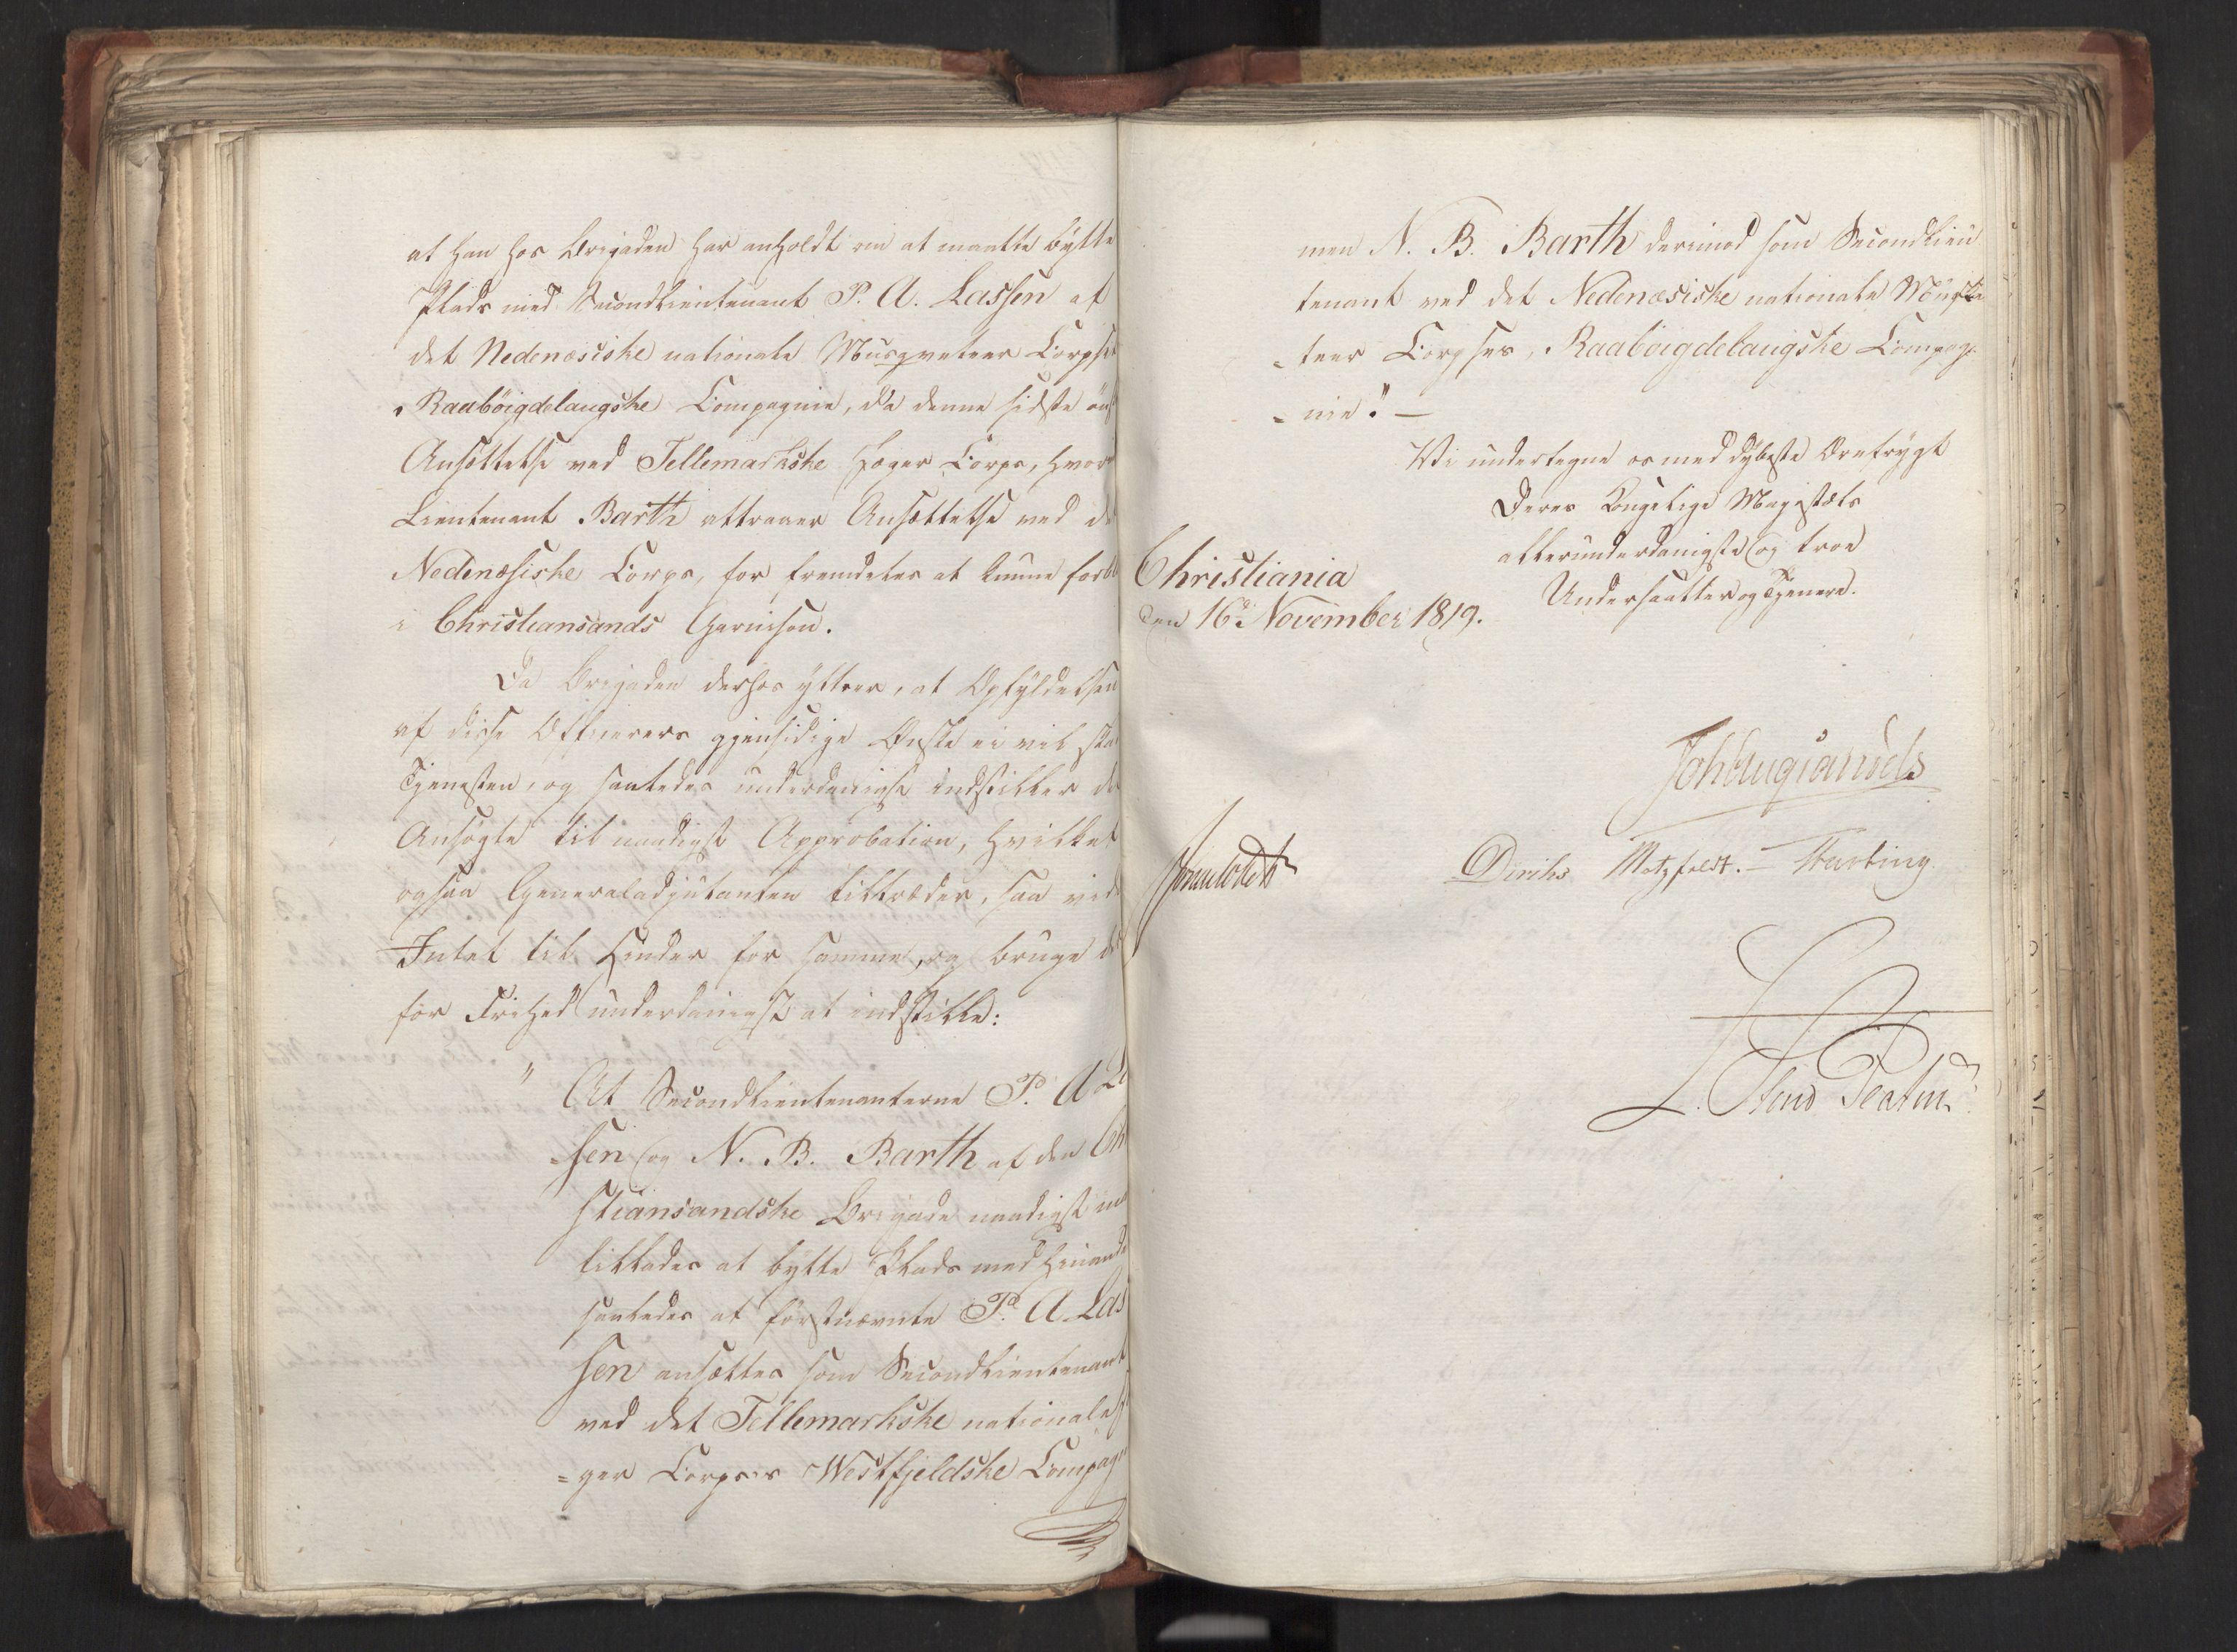 at han hos Brigaden har anholdt om at maatte bytte
Plads med Secondlieutenant P. A. Lassen af
det Nedenæsiske nationale Musqveteer Corpses
Raabøigdelaugske Compagnie, da denne sidste øns
Ansættelse ved Tellemarkske Jæger Corps, hvor
Lieutenant Barth attraaer Ansættelse ved de
Nedenæsiske Corps, for fremdeles at kunne forbl
i Christiansands Garnison.
Da Brigaden derhos yttrer, at Opfyldelsen
af disse Officerers gjensidige Ønske ei vil ska
Tjenesten, og saaledes underdanigst indstiller de
Ansøgte til naadigst Approbation, hvilket
ogsaa Generaladjutanten tiltræder, saa vides
Intet til Hinder for samme, og bruge de
for Frihed underdanigst at indstille:
" At Secondlieutenanterne P. A. La
sen og N. B. Barth af den Chri
stiansandske Brigade naadigst
tillades at bytte Plads med hinande
saaledes at førstnævnte P. A. Las
sen ansættes som Secondlieutenant
ved det Tellemarkske nationale
=ger Corpses Westfjeldske Compag
men N. B. Barth derimod som Secondlieu
tenant ved det Nedenæsiske nationale Muskе
=teer Corpses, Raabøigdelaugske Compag
=nie". —
Vi undertegne os med dybeste Ærefrygt
Deres Kongelige Majestæts
allerunderdanigste og troe
Undersaatter og Tjenere.
Christiania
den 16de November 1819.
Diriks Motzfeldt. — Fasting